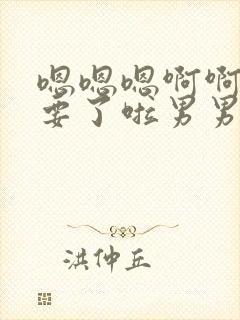 嗯嗯嗯啊啊
要了啦男男
洪仲丘